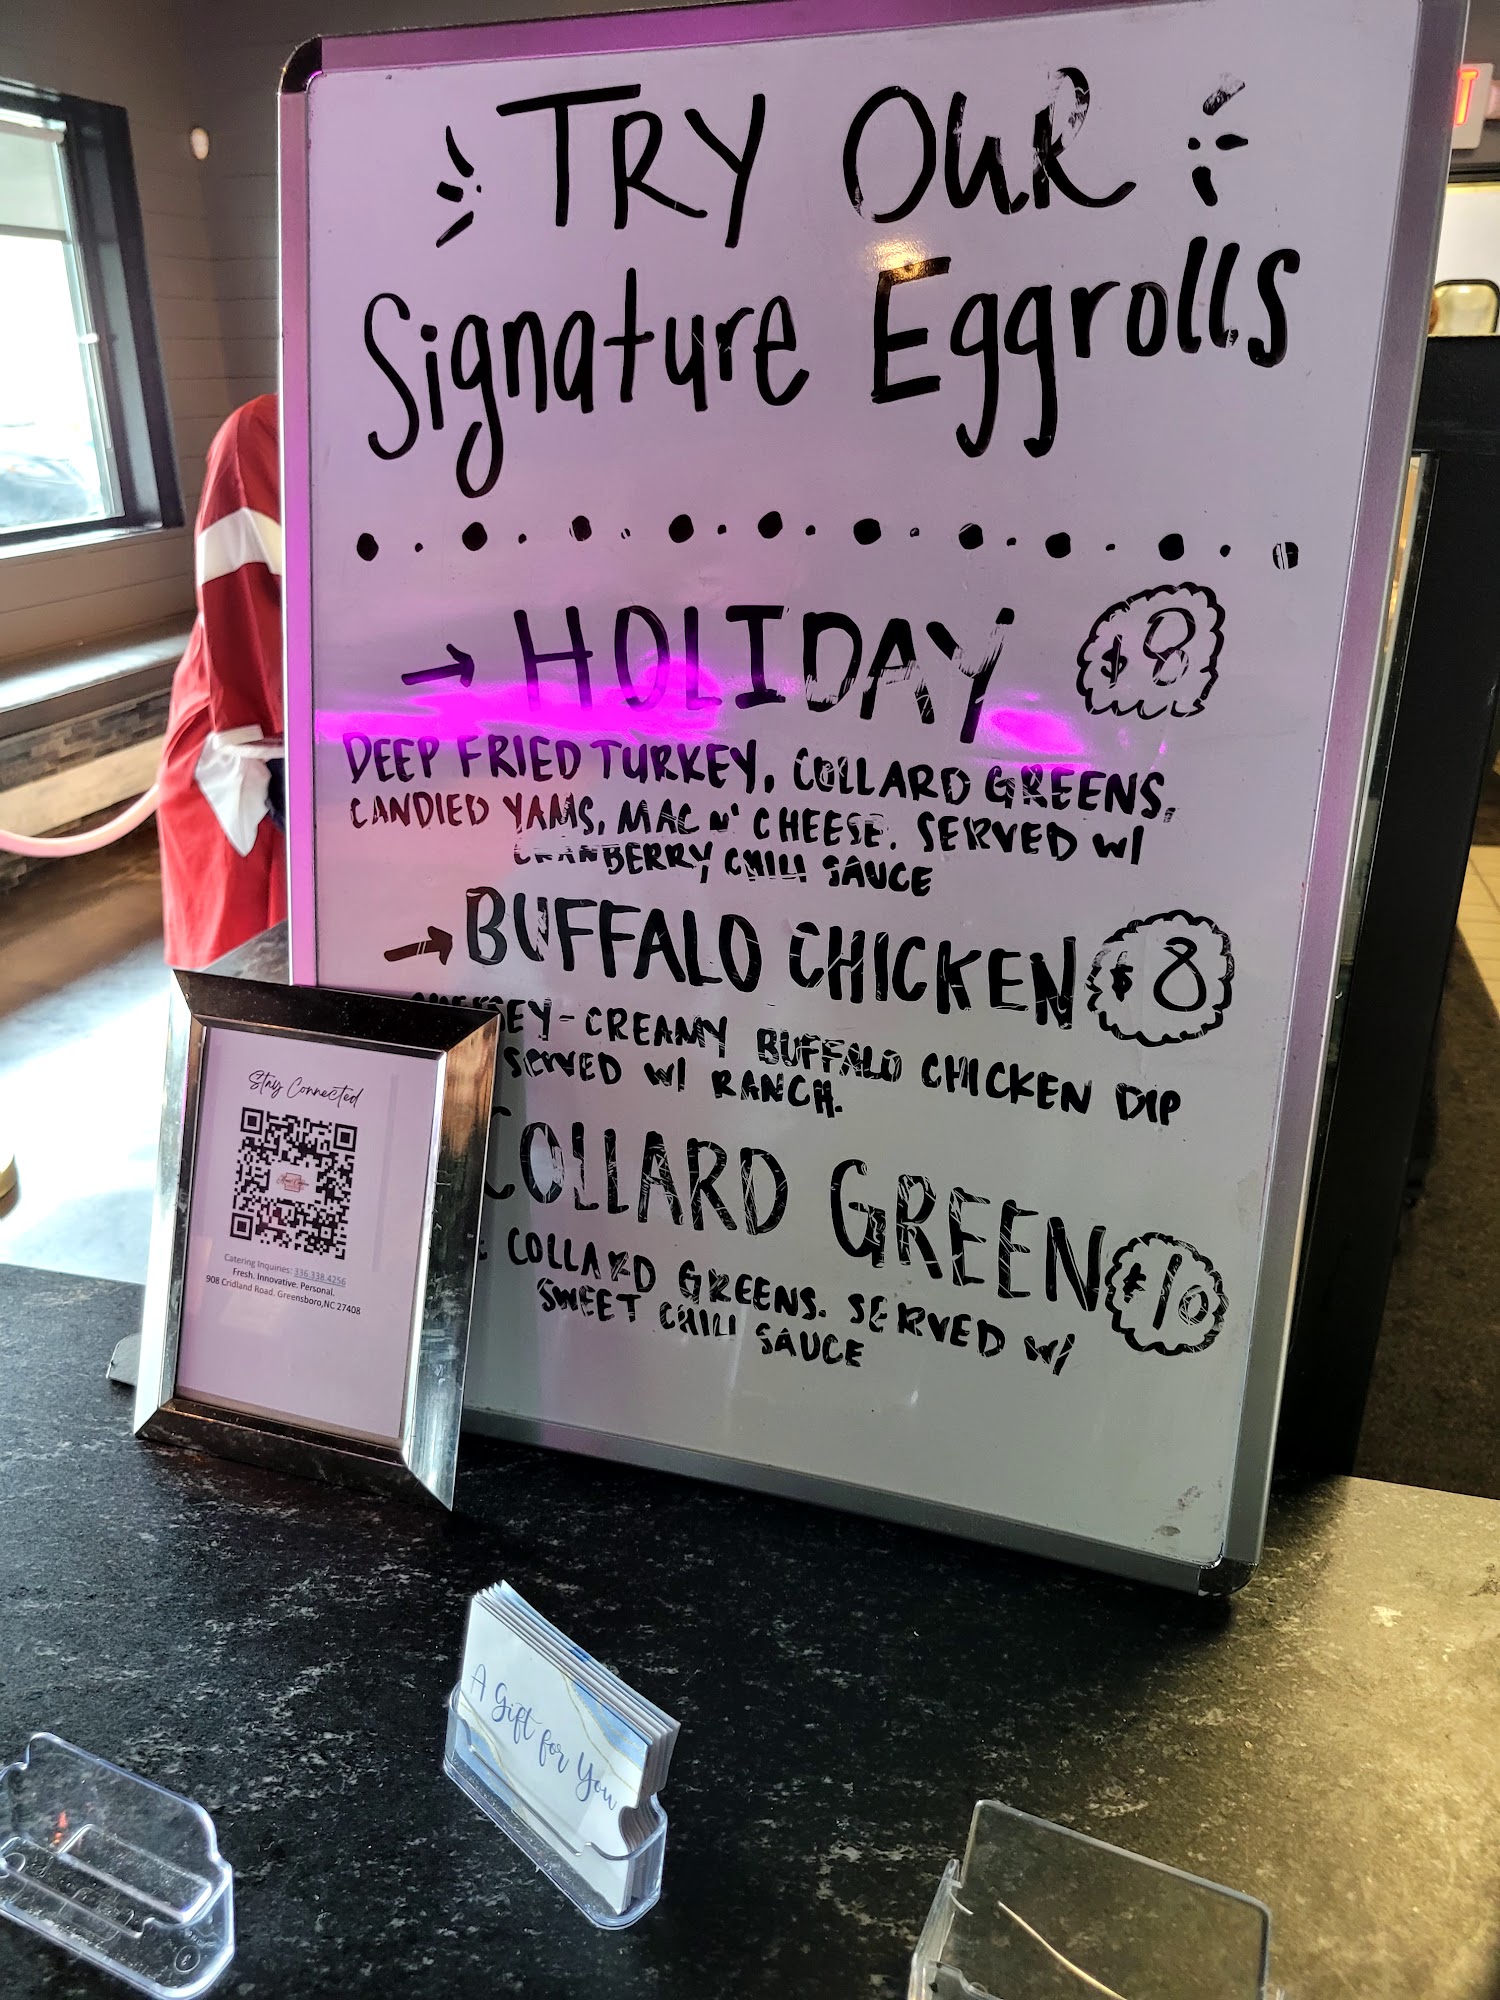 TRY OUR
Signature Eggrolls
→ HOLIDAY $8
DEEP FRIED TURKEY, COLLARD GREENS,
CANDIED YAMS, MAC N' CHEESE. SERVED W/
CRANBERRY CHILI SAUCE
→ BUFFALO CHICKEN $8
-CREAMY BUFFALO CHICKEN DIP
SERVED W/ RANCH.
COLLARD GREEN $10
COLLARD GREENS. SERVED W/
SWEET CHILI SAUCE
Stay Connected
Catering Inquiries: 336.338.4256
Fresh. Innovative. Personal.
908 Cridland Road. Greensboro,NC 27408
A Gift for You